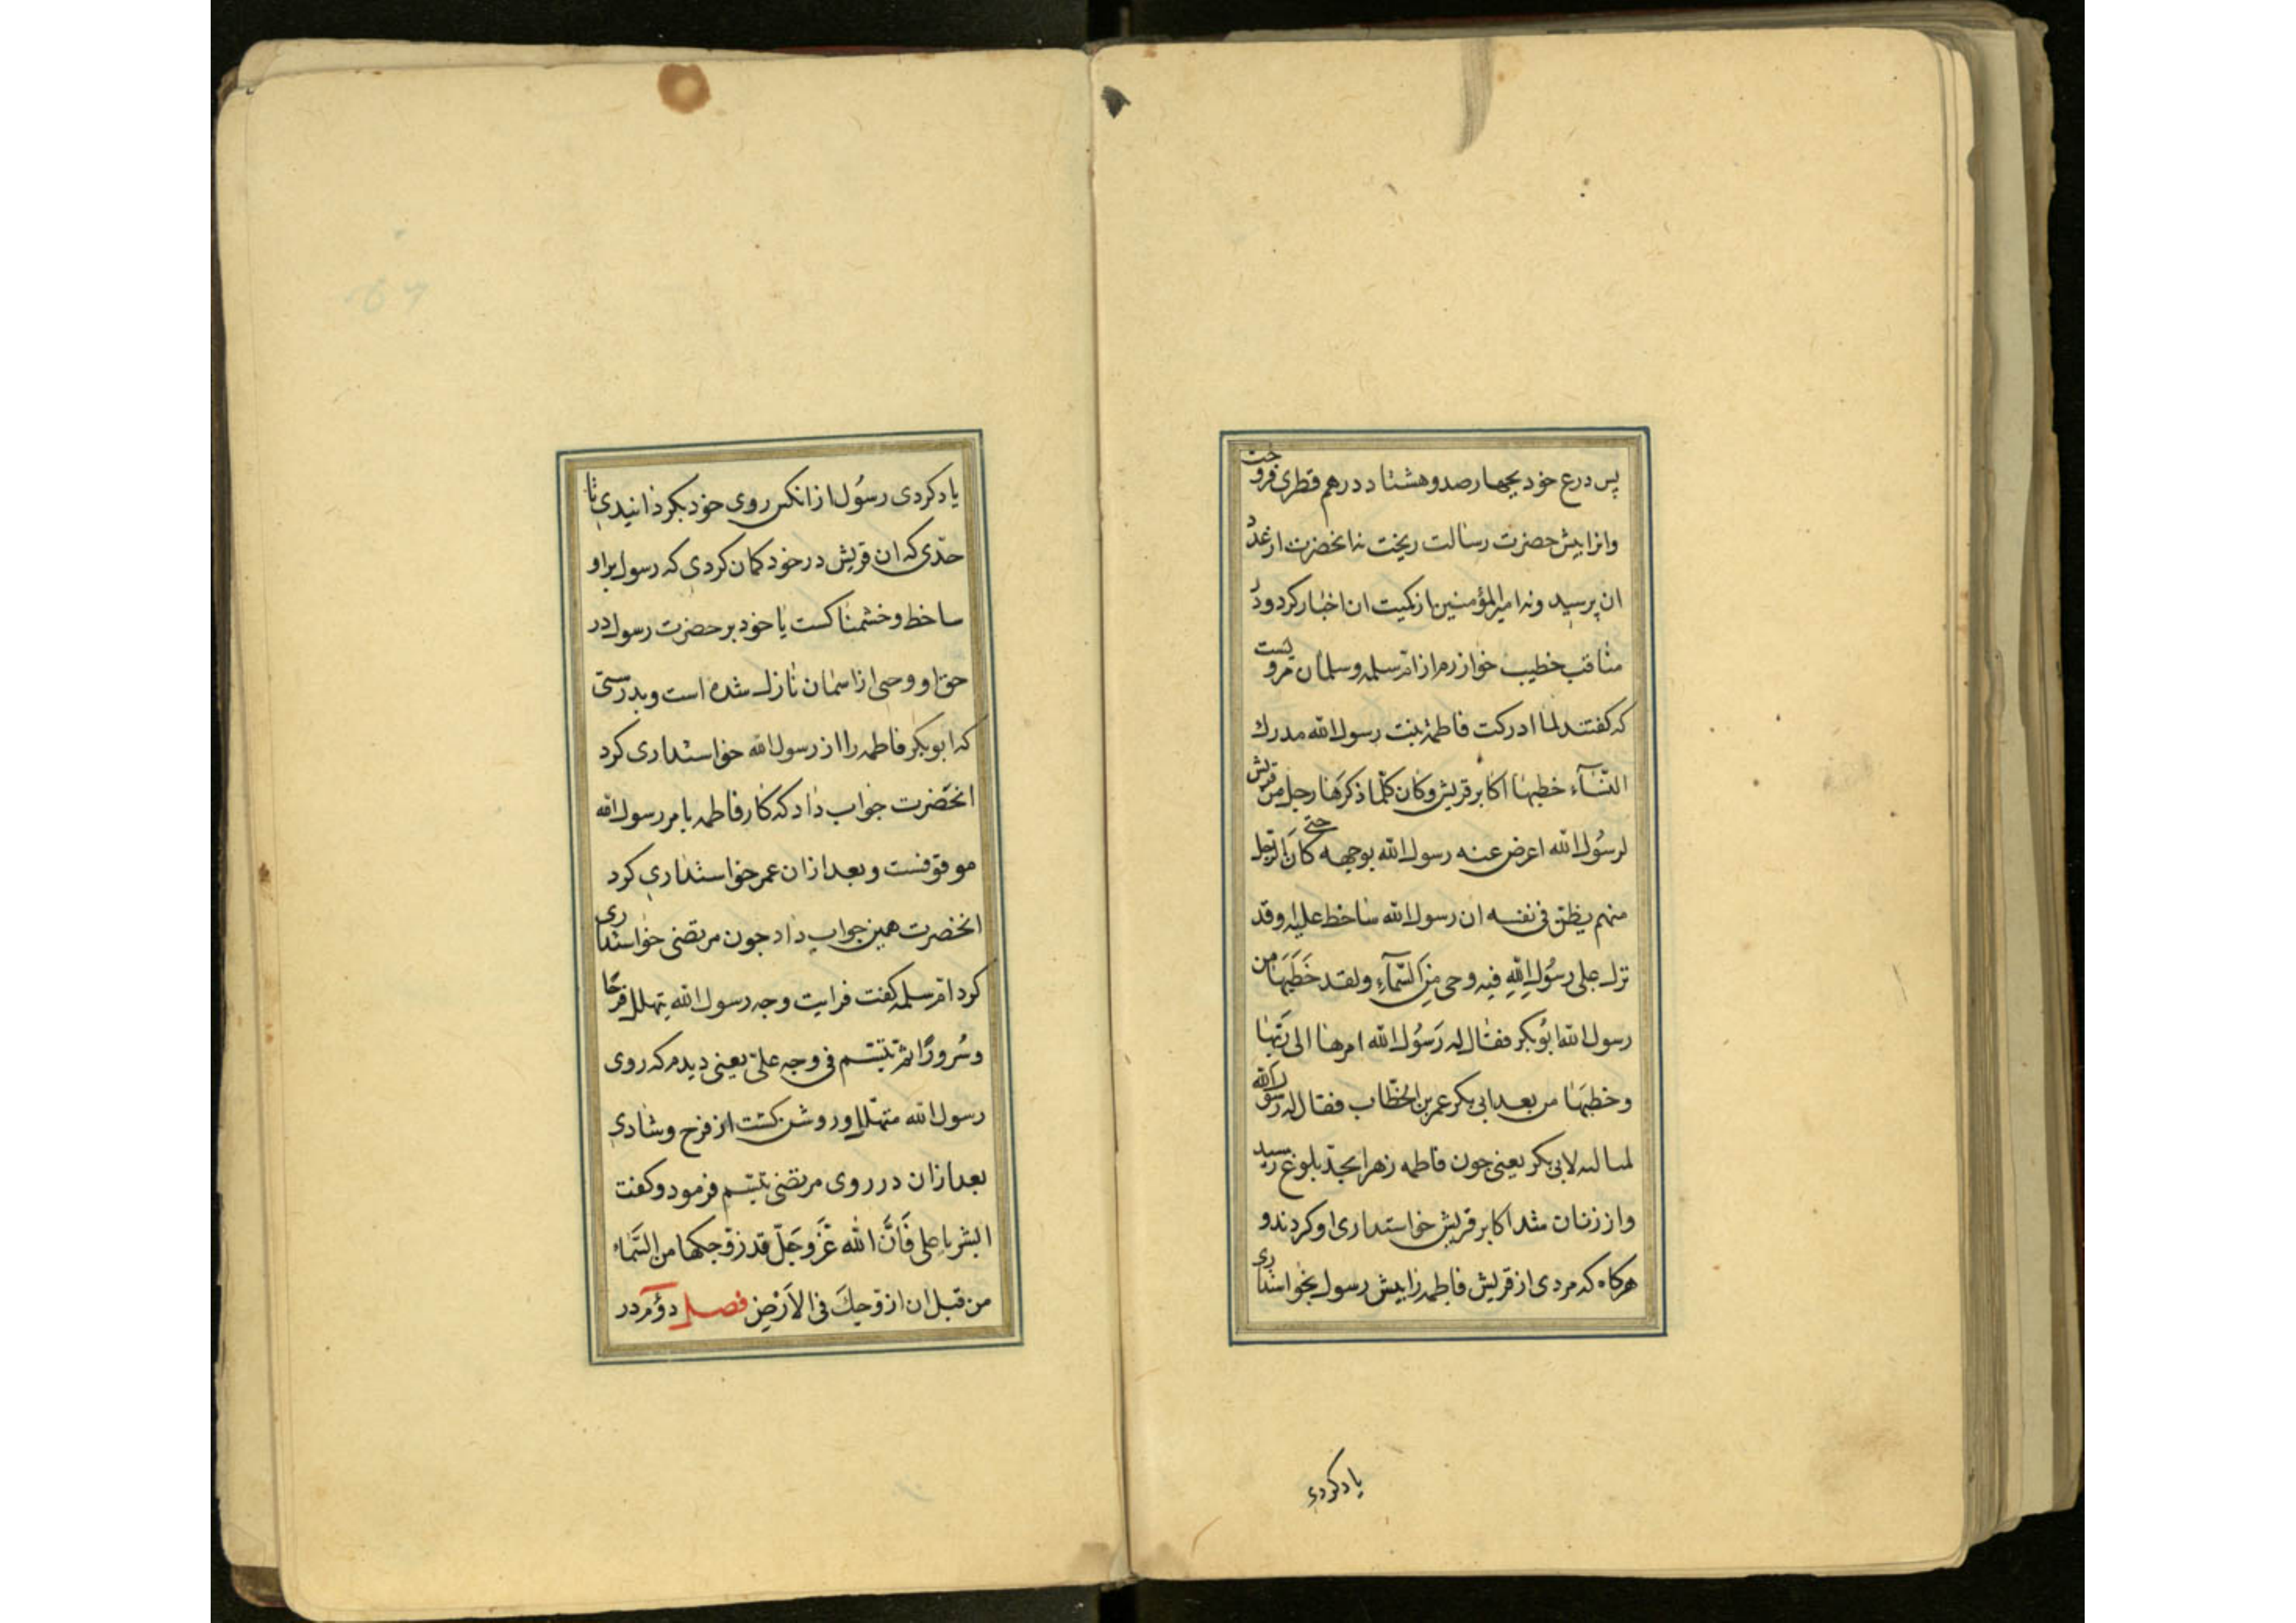 پس درع خود بچهارصد و هشتاد درهم قطری فروخت
وانرا پیش حضرت رسالت ریخت نه انحضرت از عدد
ان پرسید ونه امیرالمؤمنین از کمیت ان اخبار کرد ودر
مناقب خطیب خوارزم از ام سلمه وسلمان مرویست
که کفتند لما ادرکت فاطمة بنت رسول الله مدرك
النسآء خطبها اکابر قریش وکان کلما ذکرها رجل من قریش
لرسول الله اعرض عنه رسول الله بوجهه حتی کان الرجل
منهم یظن فی نفسه ان رسول الله ساخط علیه وقد
نزل علی رسول الله فیه وحی من السمآء ولقد خطبها من
رسول الله ابوبکر فقال له رسول الله امرها الی ربها
وخطبها من بعد ابی بکر عمر بن الخطاب فقال له رسول الله
لما له لابی بکر یعنی جون فاطمه زهرا بحد بلوغ رسید
واز زنان شد اکابر قریش خواستداری او کردند و
هرکاه که مردی از قریش فاطمه را پیش رسول بخواستداری
یاد کردی
یاد کردی رسول از انکس روی خود بکردانیدی تا
حدی که ان قریش در خود کمان کردی که رسول بر او
ساخط وخشمناکست یا خود بر حضرت رسول در
حق او وحی از اسمان نازل شده است وبدرستی
که ابوبکر فاطمه را از رسول الله خواستداری کرد
انحضرت جواب داد که کار فاطمه بامر رسول الله
موقوفست وبعد از ان عمر خواستداری کرد
انحضرت همین جواب داد جون مرتضی خواستداری
کرد ام سلمه کفت فرایت وجه رسول الله یتهلل فرحا
وسرورا ثم تبسم فی وجه علی یعنی دیدم که روی
رسول الله متهلل وروشن کشت از فرح وشادی
بعد از ان در روی مرتضی تبسم فرمود وکفت
ابشر یا علی فان الله عز وجل قد زوجکها من السماء
من قبل ان ازوجك فی الارض فصل دوم در